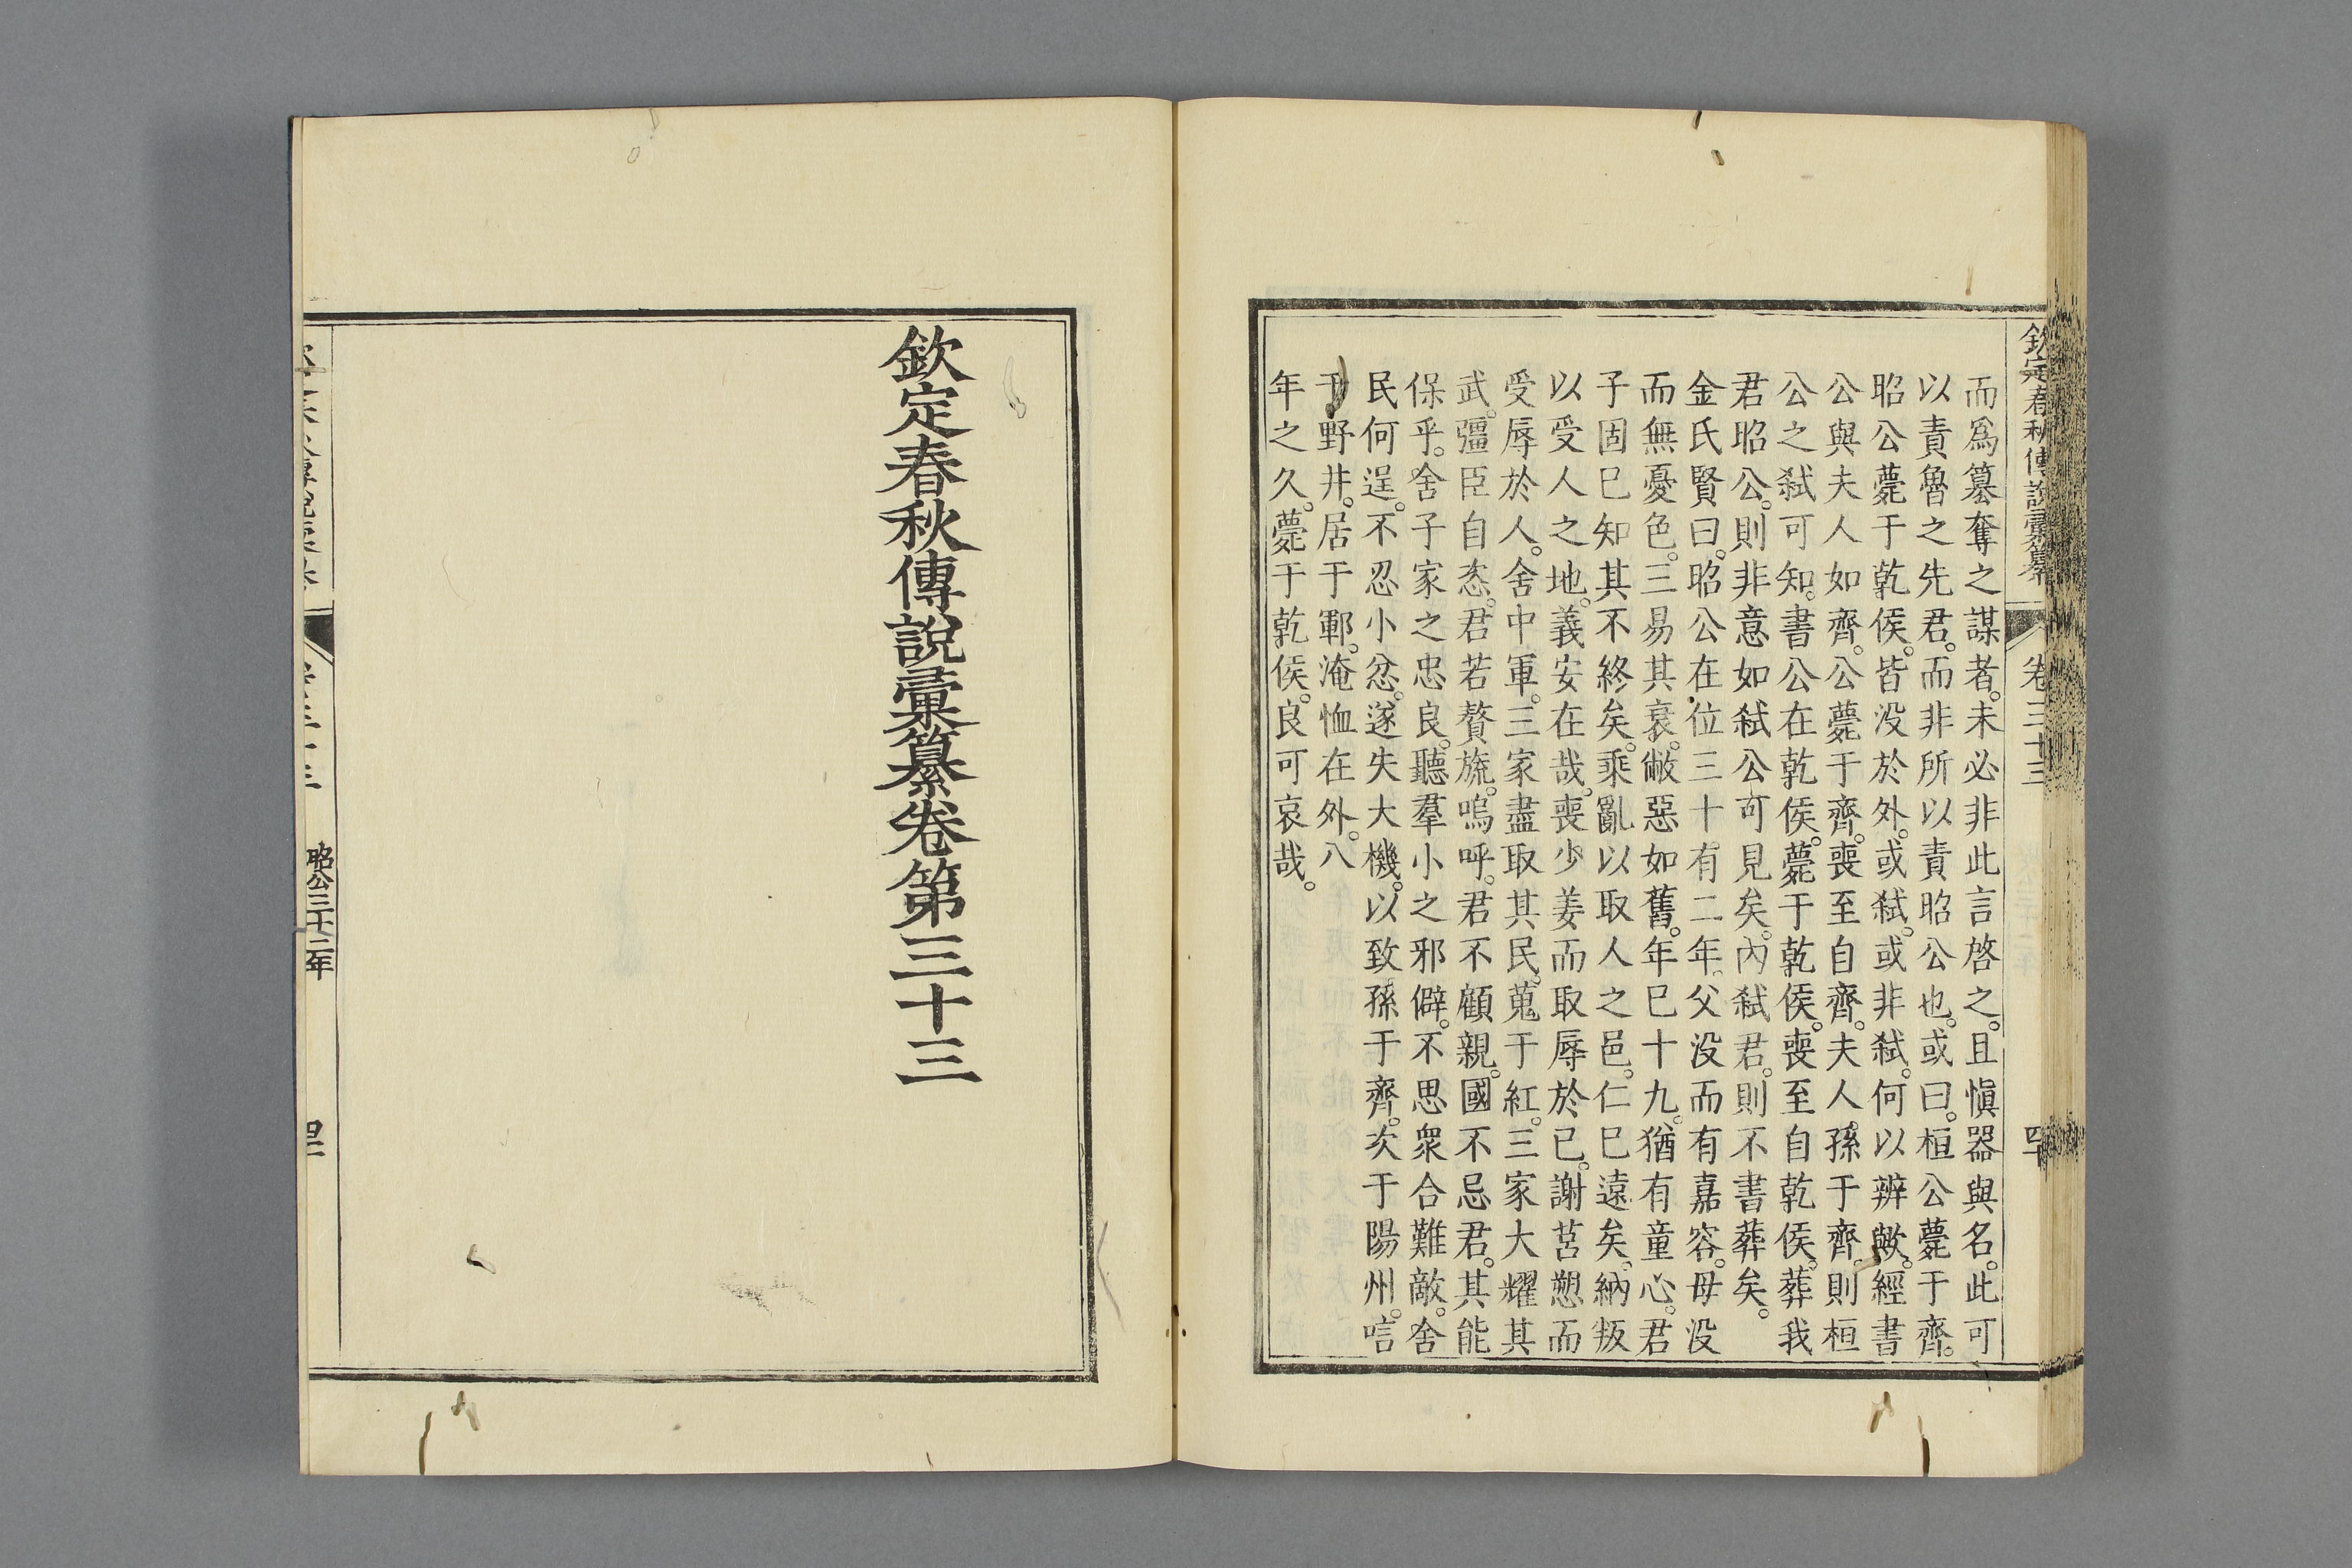 欽定春秋傳說彙纂 卷三十三 四十
而爲簒奪之謀者。未必非此言啓之。且愼器與名。此可
以責魯之先君。而非所以責昭公也。或曰。桓公薨于齊。
昭公薨于乾侯。皆没於外。或弑。或非弑。何以辨歟。經書
公與夫人如齊。公薨于齊。喪至自齊。夫人孫于齊。則桓
公之弑可知。書公在乾侯。薨于乾侯。喪至自乾侯。葬我
君昭公。則非意如弑公可見矣。內弑君。則不書葬矣。
金氏賢曰。昭公在位三十有二年。父没而有嘉容。母没
而無憂色。三易其衰。敝惡如舊。年巳十九。猶有童心。君
子固巳知其不終矣。乘亂以取人之邑。仁巳遠矣。納叛
以受人之地。義安在哉。喪少姜而取辱於巳。謝莒愬而
受辱於人。舍中軍。三家盡取其民。蒐于紅。三家大耀其
武。彊臣自恣。君若贅旒。嗚呼。君不顧親。國不忌君。其能
保乎。舍子家之忠良。聽羣小之邪僻。不思衆合難敵。舍
民何逞。不忍小忿。遂失大機。以致孫于齊。次于陽州。唁
于野井。居于鄆。淹恤在外。八
年之久。薨于乾侯。良可哀哉。
欽定春秋傳說彙纂卷第三十三
昭公三十二年